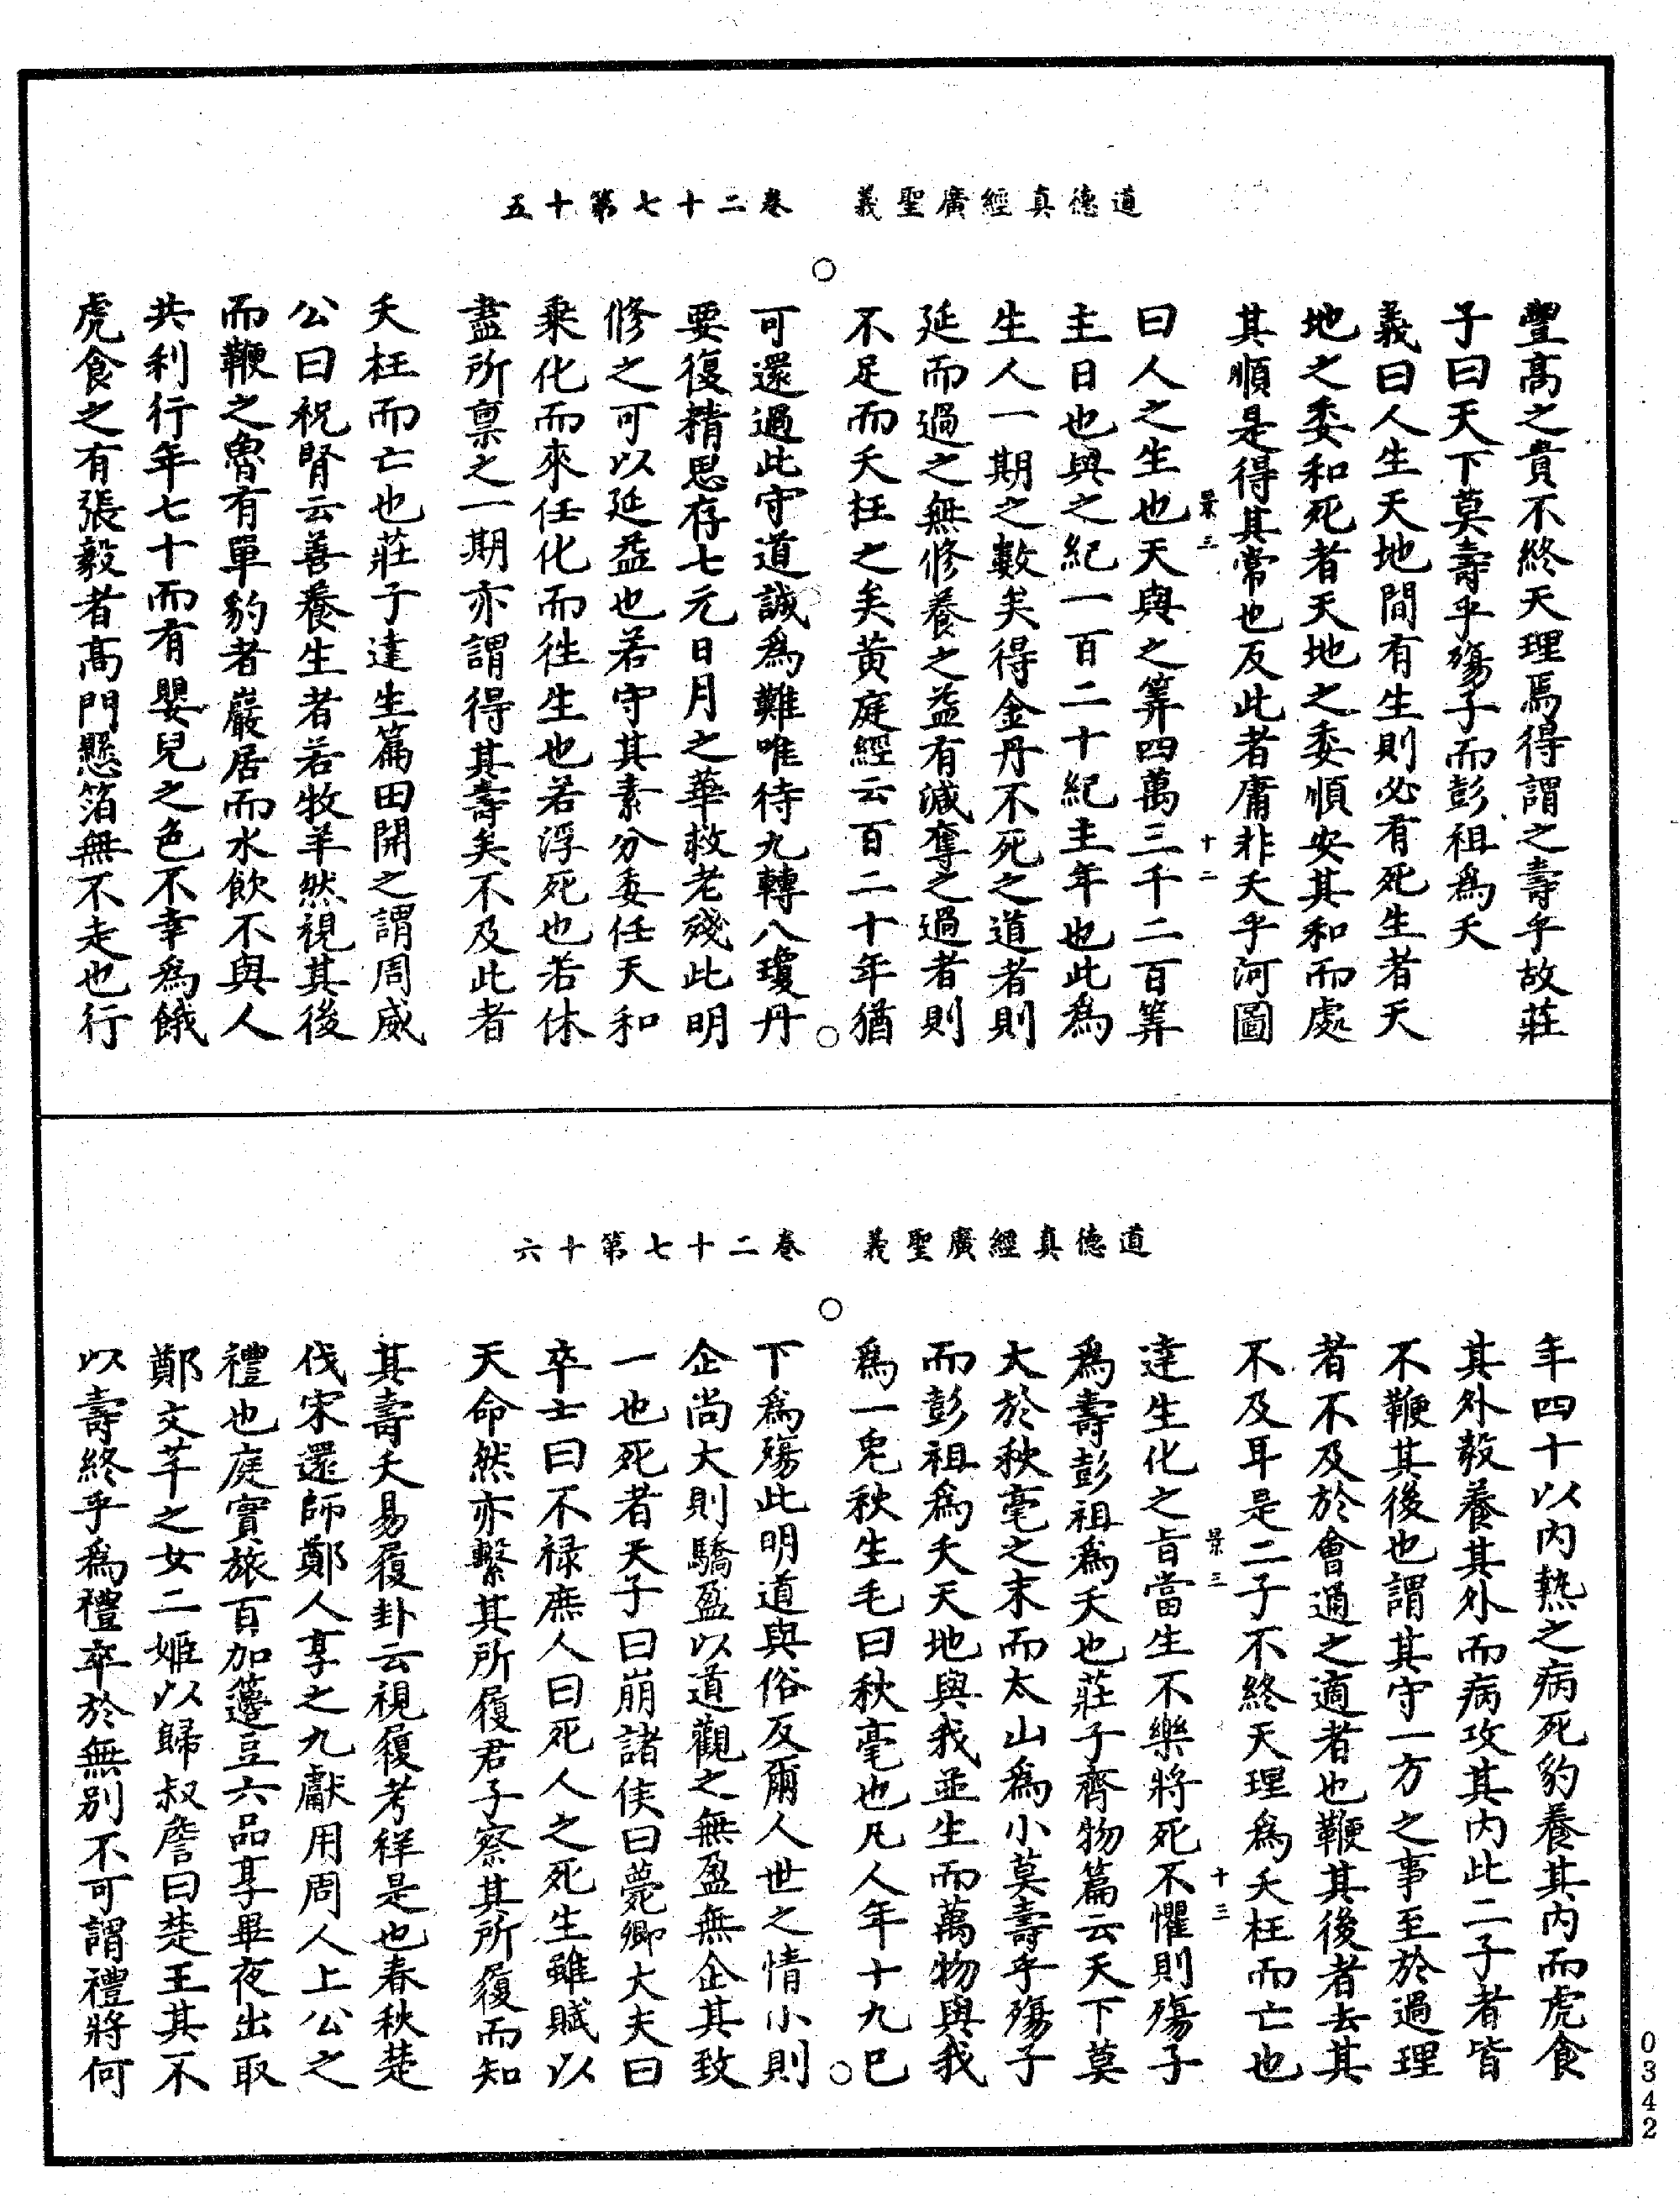 道德真經廣聖義　卷二十七第十五
豐髙之貴不終天理焉得謂之壽乎故莊
子曰天下莫壽乎殤子而彭祖爲夭
義曰人生天地間有生則必有死生者天
地之委和死者天地之委順安其和而處
其順是得其常也反此者庸非夭乎河圖
景三　十二
曰人之生也天與之筭四萬三千二百筭
主日也與之紀一百二十紀主年也此爲
生人一期之數矣得金丹不死之道者則
延而過之無修養之益有減奪之過者則
不足而夭枉之矣黄庭經云百二十年猶
可還過此守道誠爲難唯待九轉八瓊丹
要復精思存七元日月之華救老殘此明
修之可以延益也若守其素分委任天和
乗化而來任化而徃生也若浮死也若休
盡所禀之一期亦謂得其壽矣不及此者
夭枉而亡也莊子達生篇田開之謂周威
公曰祝腎云善養生者若牧羊然視其後
而鞭之魯有單豹者巖居而水飲不與人
共利行年七十而有嬰兒之色不幸爲餓
虎食之有張毅者髙門懸箔無不走也行
道德真經廣聖義　卷二十七第十六
年四十以内熱之病死豹養其内而虎食
其外毅養其外而病攻其内此二子者皆
不鞭其後也謂其守一方之事至於過理
者不及於會通之適者也鞭其後者去其
不及耳是二子不終天理爲夭枉而亡也
景三　十三
達生化之旨當生不樂將死不懼則殤子
爲壽彭祖爲夭也莊子齊物篇云天下莫
大於秋毫之末而太山爲小莫壽乎殤子
而彭祖爲夭天地與我並生而萬物與我
爲一兎秋生毛曰秋毫也凡人年十九巳
下爲殤此明道與俗反爾人世之情小則
企尚大則驕盈以道觀之無盈無企其致
一也死者天子曰崩諸侯曰薨卿大夫曰
卒士曰不禄庶人曰死人之死生雖賦以
天命然亦繫其所履君子察其所履而知
其壽夭易履卦云視履考祥是也春秋楚
伐宋還師鄭人享之九獻用周人上公之
禮也庭實旅百加籩豆六品享畢夜出取
鄭文芊之女二姬以歸叔詹曰楚王其不
以壽終乎爲禮卒於無别不可謂禮將何
0342